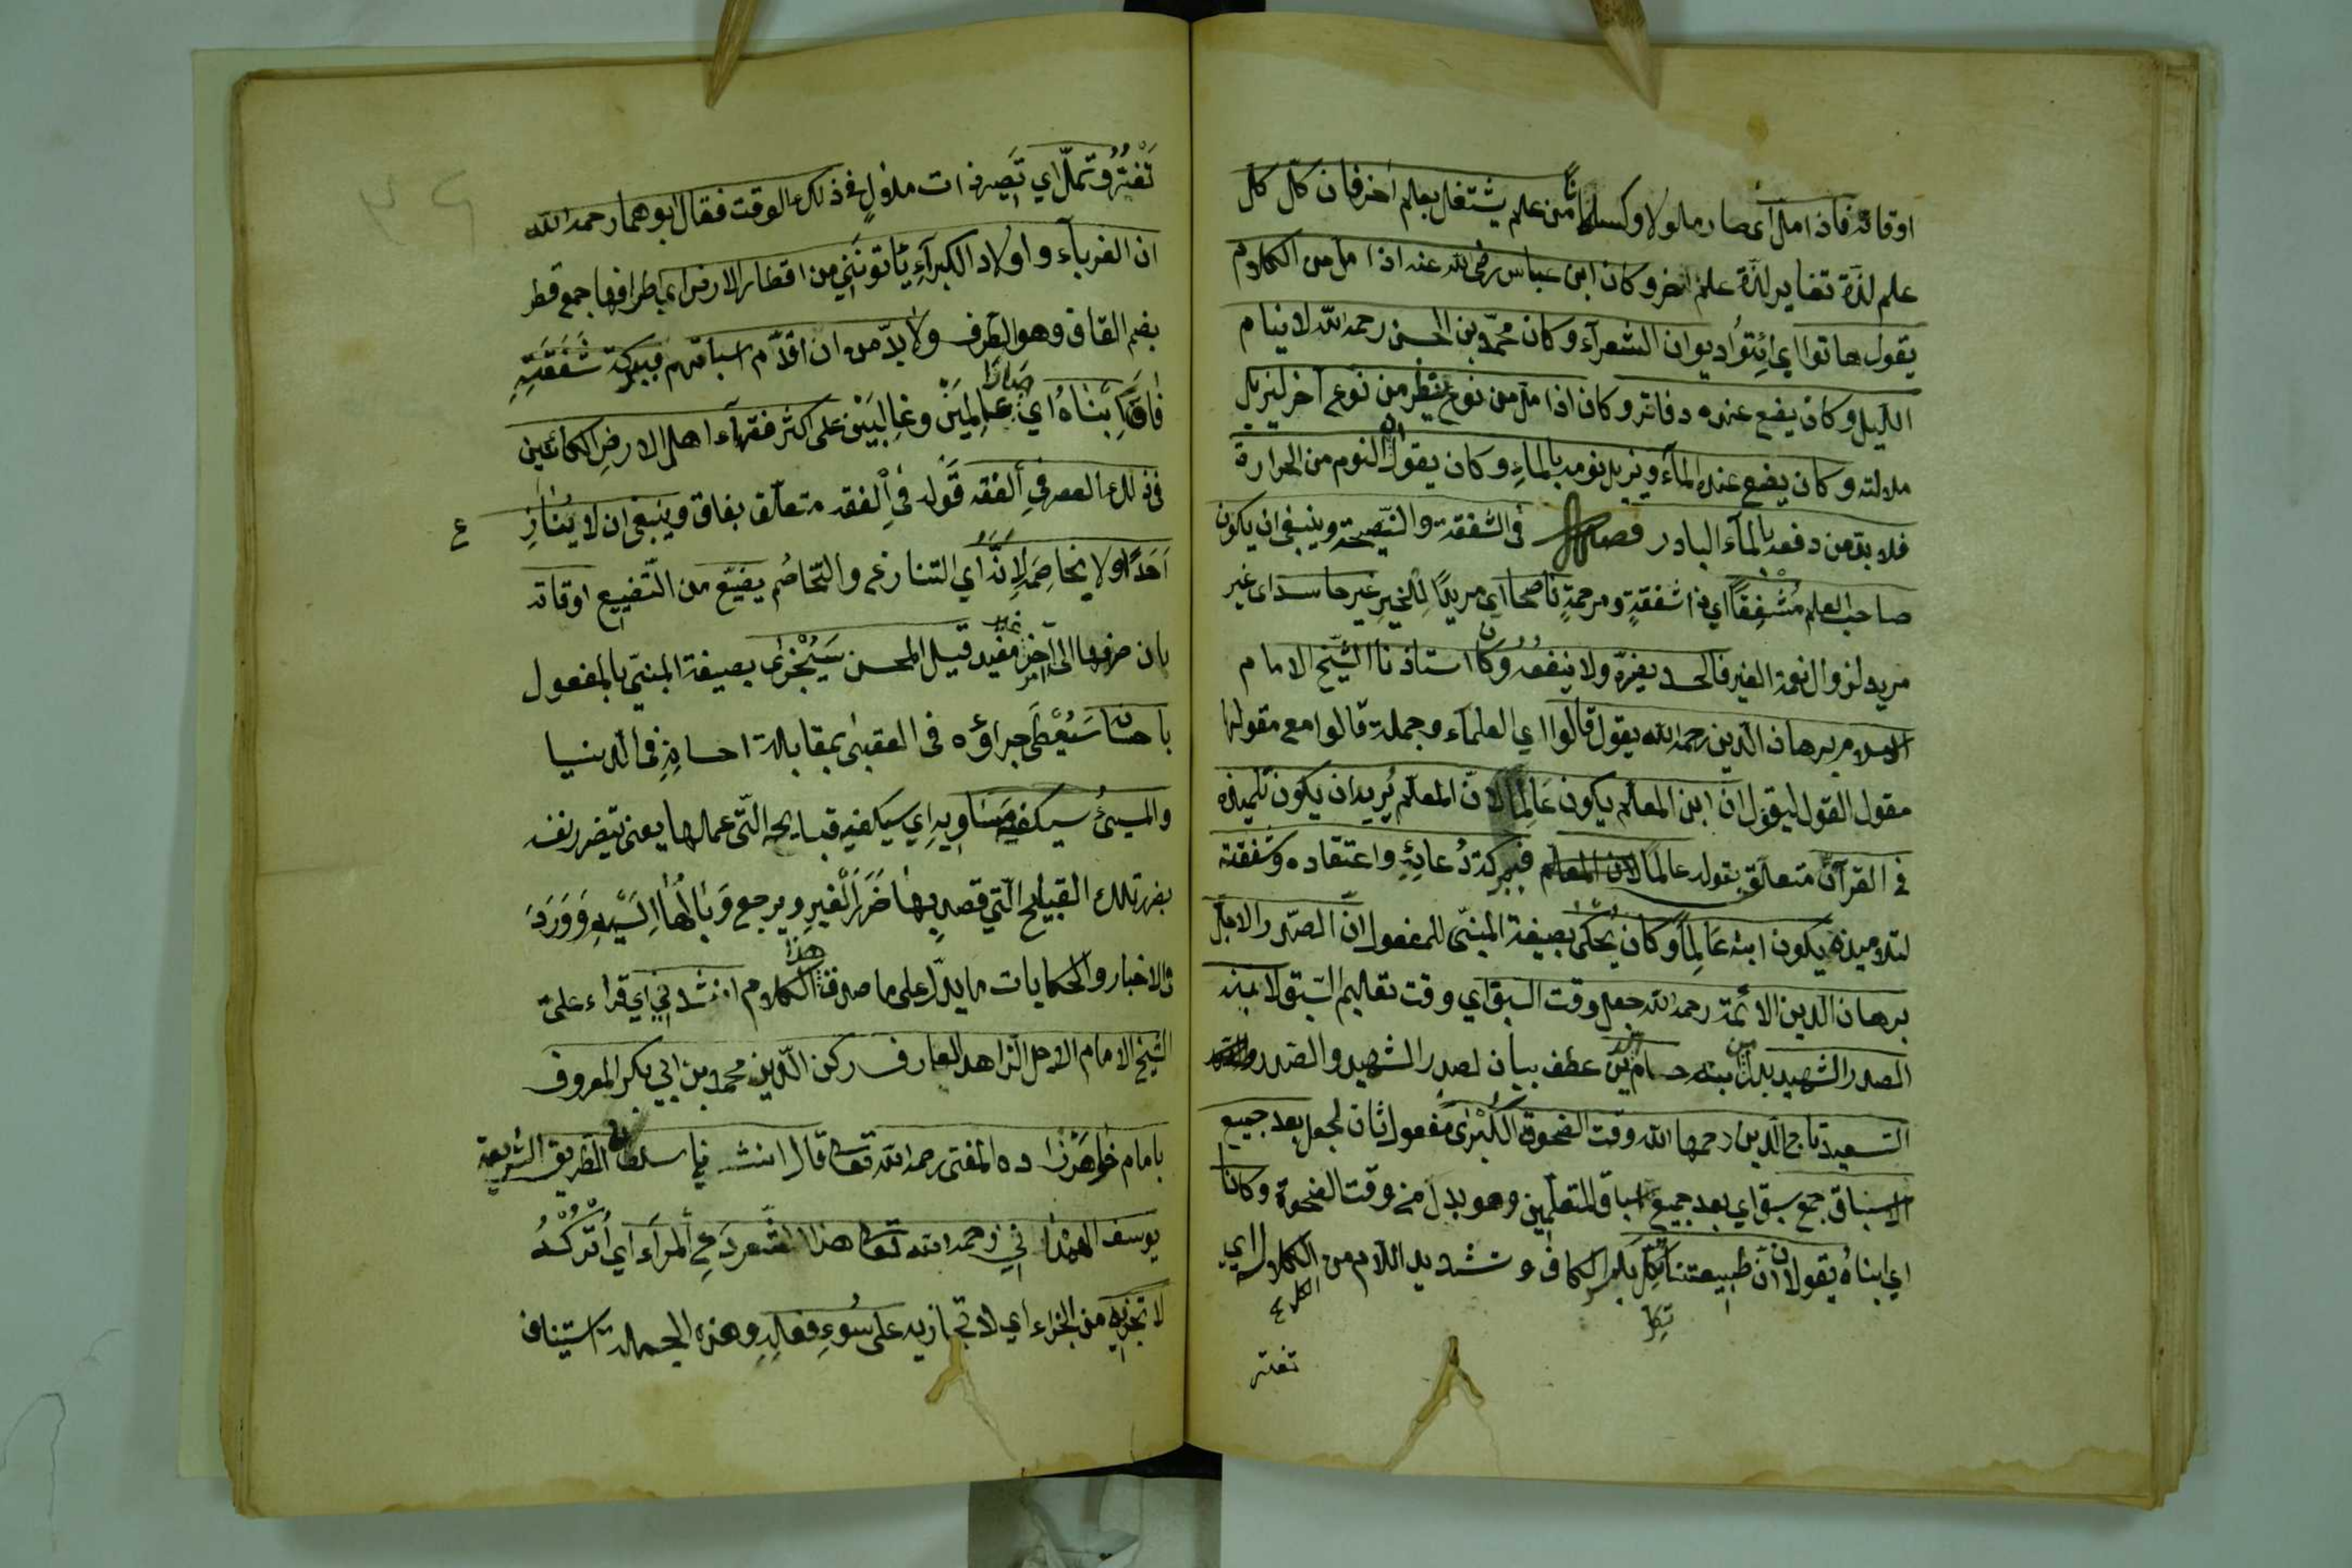 اوقاته فاذا ملّ اى صار ملولا وكسلانا من علم يشتغل بعلم آخر فان كل كل
علم لذّة تغاير لذّة علم آخر وكان ابن عباس رضى الله عنه اذا ملّ من الكلام
يقول هاتوا اي ائتوا ديوان الشعرآء وكان محمّد بن الحسن رحمه الله لا ينام
الليل وكان يضع عنده دفاتر وكان اذا ملّ من نوع ينظر من نوع آخر ليزيل
ملالته وكان يضع عنده المآء ويزيل نومه بالمآء وكان يقول ان النوم من الحرارة
فلا بدّ من دفعه بالمآء البادر فصل فى الشفقة والنّصيحة وينبغى ان يكون
صاحب العلم مُشْفِقًا اي ذا شفقةٍ ومرحمةٍ ناصحا اي مريدًا للخير غير حاسد اى غير
مريد لزوال نعمة الغير فالحسد يضرّه ولا ينفعه وكان استاذنا الشّيخ الامام
الاسلام برهان الدّين رحمه الله يقول قالوا اي العلمآء وجملة قالوا مع مقولها
مقول القول ليقول انّ ابن المعلّم يكون عَالِمًا لانّ المعلّم يُريد ان يكون تلميذه
فى القرآن متعلّق بقوله عالمًا لان المعلم فببركة دُعائِهِ واعتقاده وشفقته
لتلاميذه يكون ابنه عَالِمًا وكان يُحكى بصيغة المبنىّ للمفعول انّ الصّدر الاجلّ
برهان الدّين الائمّة رحمه الله جعل وقت السبق اي وقت تعليم السّبق لابنيه
الصدر الشهيد بدل من ابنيه حسام الدين عطف بيان لصدر الشهيد والصّدر
السّعيد تاج الدّين رحمهما الله وقت الضحوة الكُبْرٰى مفعول ثان لجعل بعد جميع
الاسباق جمع سبق اي بعد جميع اسباق المتعلّمين وهو بدل من وقت الضحوة وكانا
اي ابناهُ يقولان انّ طبيعتنا تَكِلّ بكسر الكاف وتشديد اللام من الكلال اي
الكل ع
تكلّ
تفتر
تَفْتُرُ وتملّ اي تَصير ذات ملولٍ فى ذلك الوقت فقال ابوهما رحمه الله
ان الغربآء واولاد الكبرآءِ يَأتونَنِي من اقطار الارض اي اطرافها جمع قطر
بضم القاف وهو الطرف ولا بدّ من ان اقدّم اسباقهم فببركة شَفَقَتِهِ
فَاقَ ابْنَاهُ اي صَارَا عَالِمَيْنِ وغالِبَيْنِ على اكثر فقهآء اهل الارض الكائنين
فى ذلك العصر فِي الفقه قَوله فى الفقه متعلّق بفاق وينبغى ان لا يُنَازِ
ع
اَحَدًا ولا يخاصِمَه لِاَنَّهُ اي التنازع والتّخاصُم يضيّع من التّضييع اوقاته
بان صرفها الى امر غير مفيد قيل المحسن سَيُجْزٰى بصيغة المبنىّ بالمفعول
باحسانه سَيُعْطَى جزاؤه فى العقبىٰ بمقابلة احسانِهِ فى الدّنيا
والمسئُ سيكفيه مساويه اي سيكفيه قبايحه الّتى عملها يعنى يتضرر نفسه
بضرر تلك القبايح الّتي قصد بها ضَرَر الْغيرِ ويرجع وَبَالُهَا اِلَيْهِ وَوَرَدَ
فى الاخبار والحكايات ما يدلّ على ما صدق هذا الكلام انشدني اي قراء علىّ
الشّيخ الامام الاجل الزاهد العارف ركن الدّين محمد بن ابي بكر المعروف
بامام خواهرزاده المفتى رحمه الله تعالى قال انشدني سلطان الطريق الشريعة
يوسف الهمْدَاني رحمه الله تعالى هذا الشّعر دَعِ الْمرْأَ اي اُتْرُكْهُ
لا تجزيه من الجزاء اي لا تجازيه على سُوءِ فعالِهِ وهذه الجملة استيناف